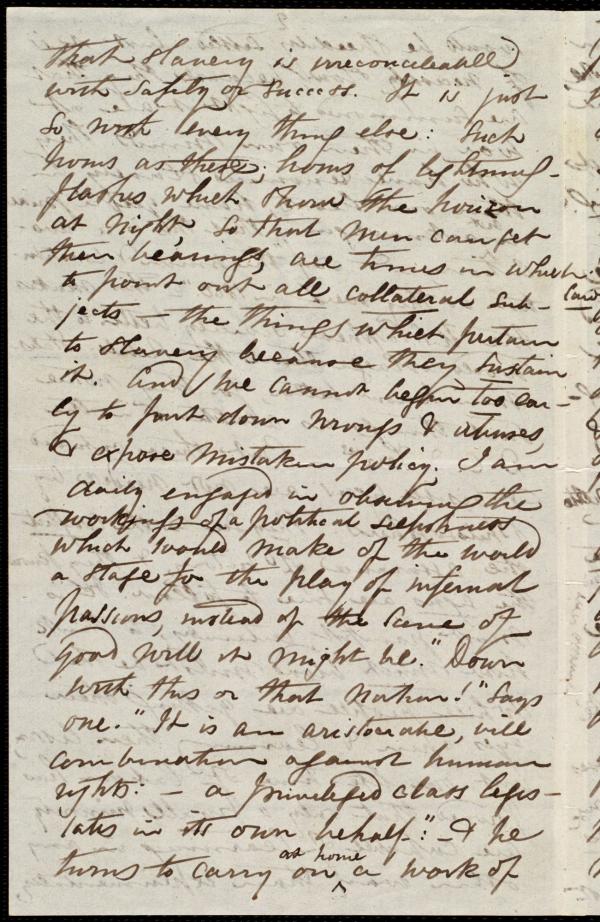 that slavery is irreconcileable
with safety or success. It is just
so with every thing else: Such
hours as these; hours of lightning-
flashes which show the horizon
at night so that men can get
their bearings, are times in which
to point out all collateral sub-
jects — the things which pertain
to slavery because they sustain
it. And we cannot begin too ear-
ly to put down wrongs & abuses,
& expose mistaken policy. I am
daily engaged in observing the
workings of a political selfishness
which would make of the world
a stage for the play of infernal
passions, instead of the scene of
good will it might be. "Down
with this or that nation!" says
one. "It is an aristocratic, vile
combination against human
rights: — a privileged class legis-
lates in its own behalf": — & he
turns to carry on at home a work of